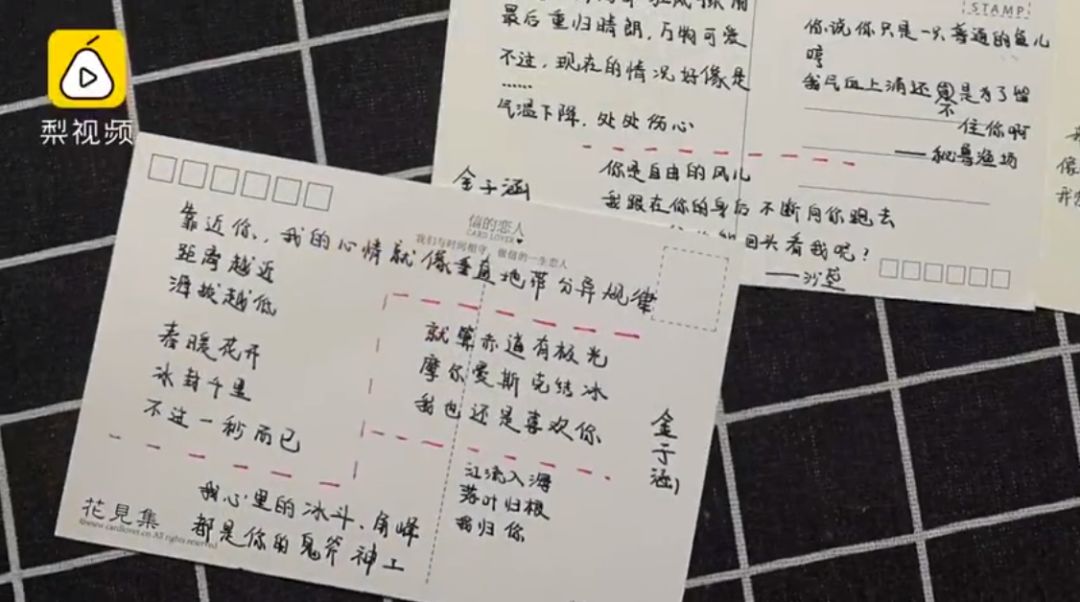 梨视频
最后重归晴朗，万物可爱
不过，现在的情况好像是
……
气温下降，处处伤心
金子涵
STAMP
你说你只是一只普通的鱼儿
哼
我气血上涌还不是为了留
住你啊
——秘鲁渔场
你是自由的风儿
我跟在你的身后不断向你跑去
回头看我呢？
——沙堡
信的恋人
CARD LOVER
我们与时间相守，做信的一生恋人
靠近你，我的心情就像垂直地带分异规律
距离越近
海拔越低
春暖花开
冰封千里
不过一秒而已
就算赤道有极光
摩尔曼斯克结冰
我也还是喜欢你
金子涵
江流入海
落叶归根
我归你
我心里的冰斗、角峰
都是你的鬼斧神工
花見集
©www.cardlover.cn All rights reserved